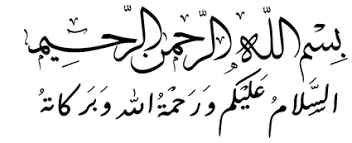 بِسْمِ اللهِ الرَّحْمنِ الرَّحِيمِ
السَّلَامُ عَلَيْكُمْ وَرَحْمَةُ اللهِ وَبَرَكَاتهُ